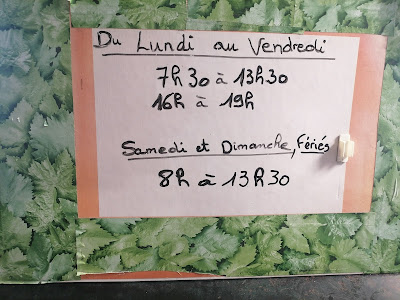 Du Lundi au Vendredi
7h30 à 13h30
16h à 19h
Samedi et Dimanche, Fériés
8h à 13h30